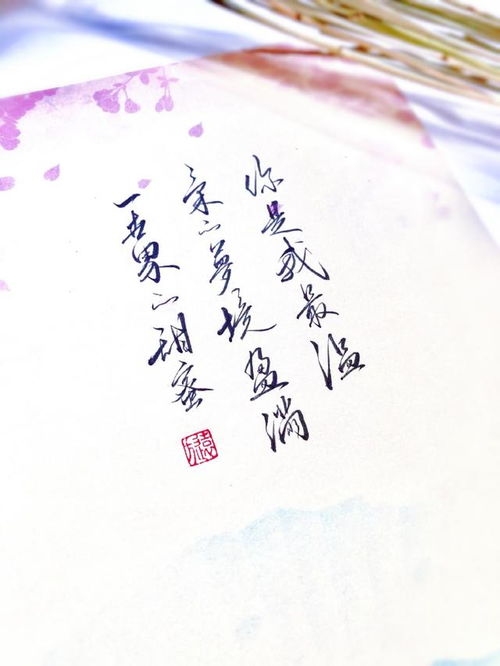 你是我最温
柔的夢境盈满
一世界的甜蜜